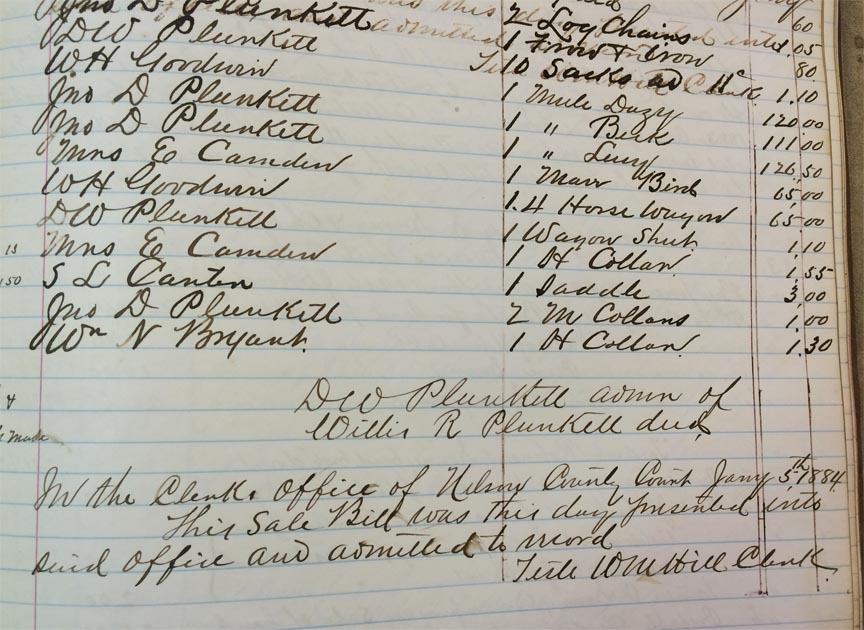 Jno D Plunkett 2 Log Chains 60
DW Plunkett 1 Frow & Iron .05
WH Goodwin 10 Sacks 80
Jno D Plunkett 1 Mule Dazy 1.10
Jno D Plunkett 1 " Beck 120.00
Mrs E Camden 1 " Lucy 111.00
WH Goodwin 1 Marr Bird 126.50
DW Plunkett 1.4 Horse Wagon 65.00
Mrs E Camden 1 Wagon Sheet 65.00
S L Carter 1 H Collar 1.10
Jno D Plunkett 1 Saddle 1.55
Wm N Bryant 2 M Collars 3.00
1 H Collar 1.00
1.30
15
150
DW Plunkett admr of
Willis R Plunkett decd
In the Clerks Office of Nelson County Court Jany 5th 1884
This Sale Bill was this day presented into
said office and admitted to record
Teste WM Hill Clerk